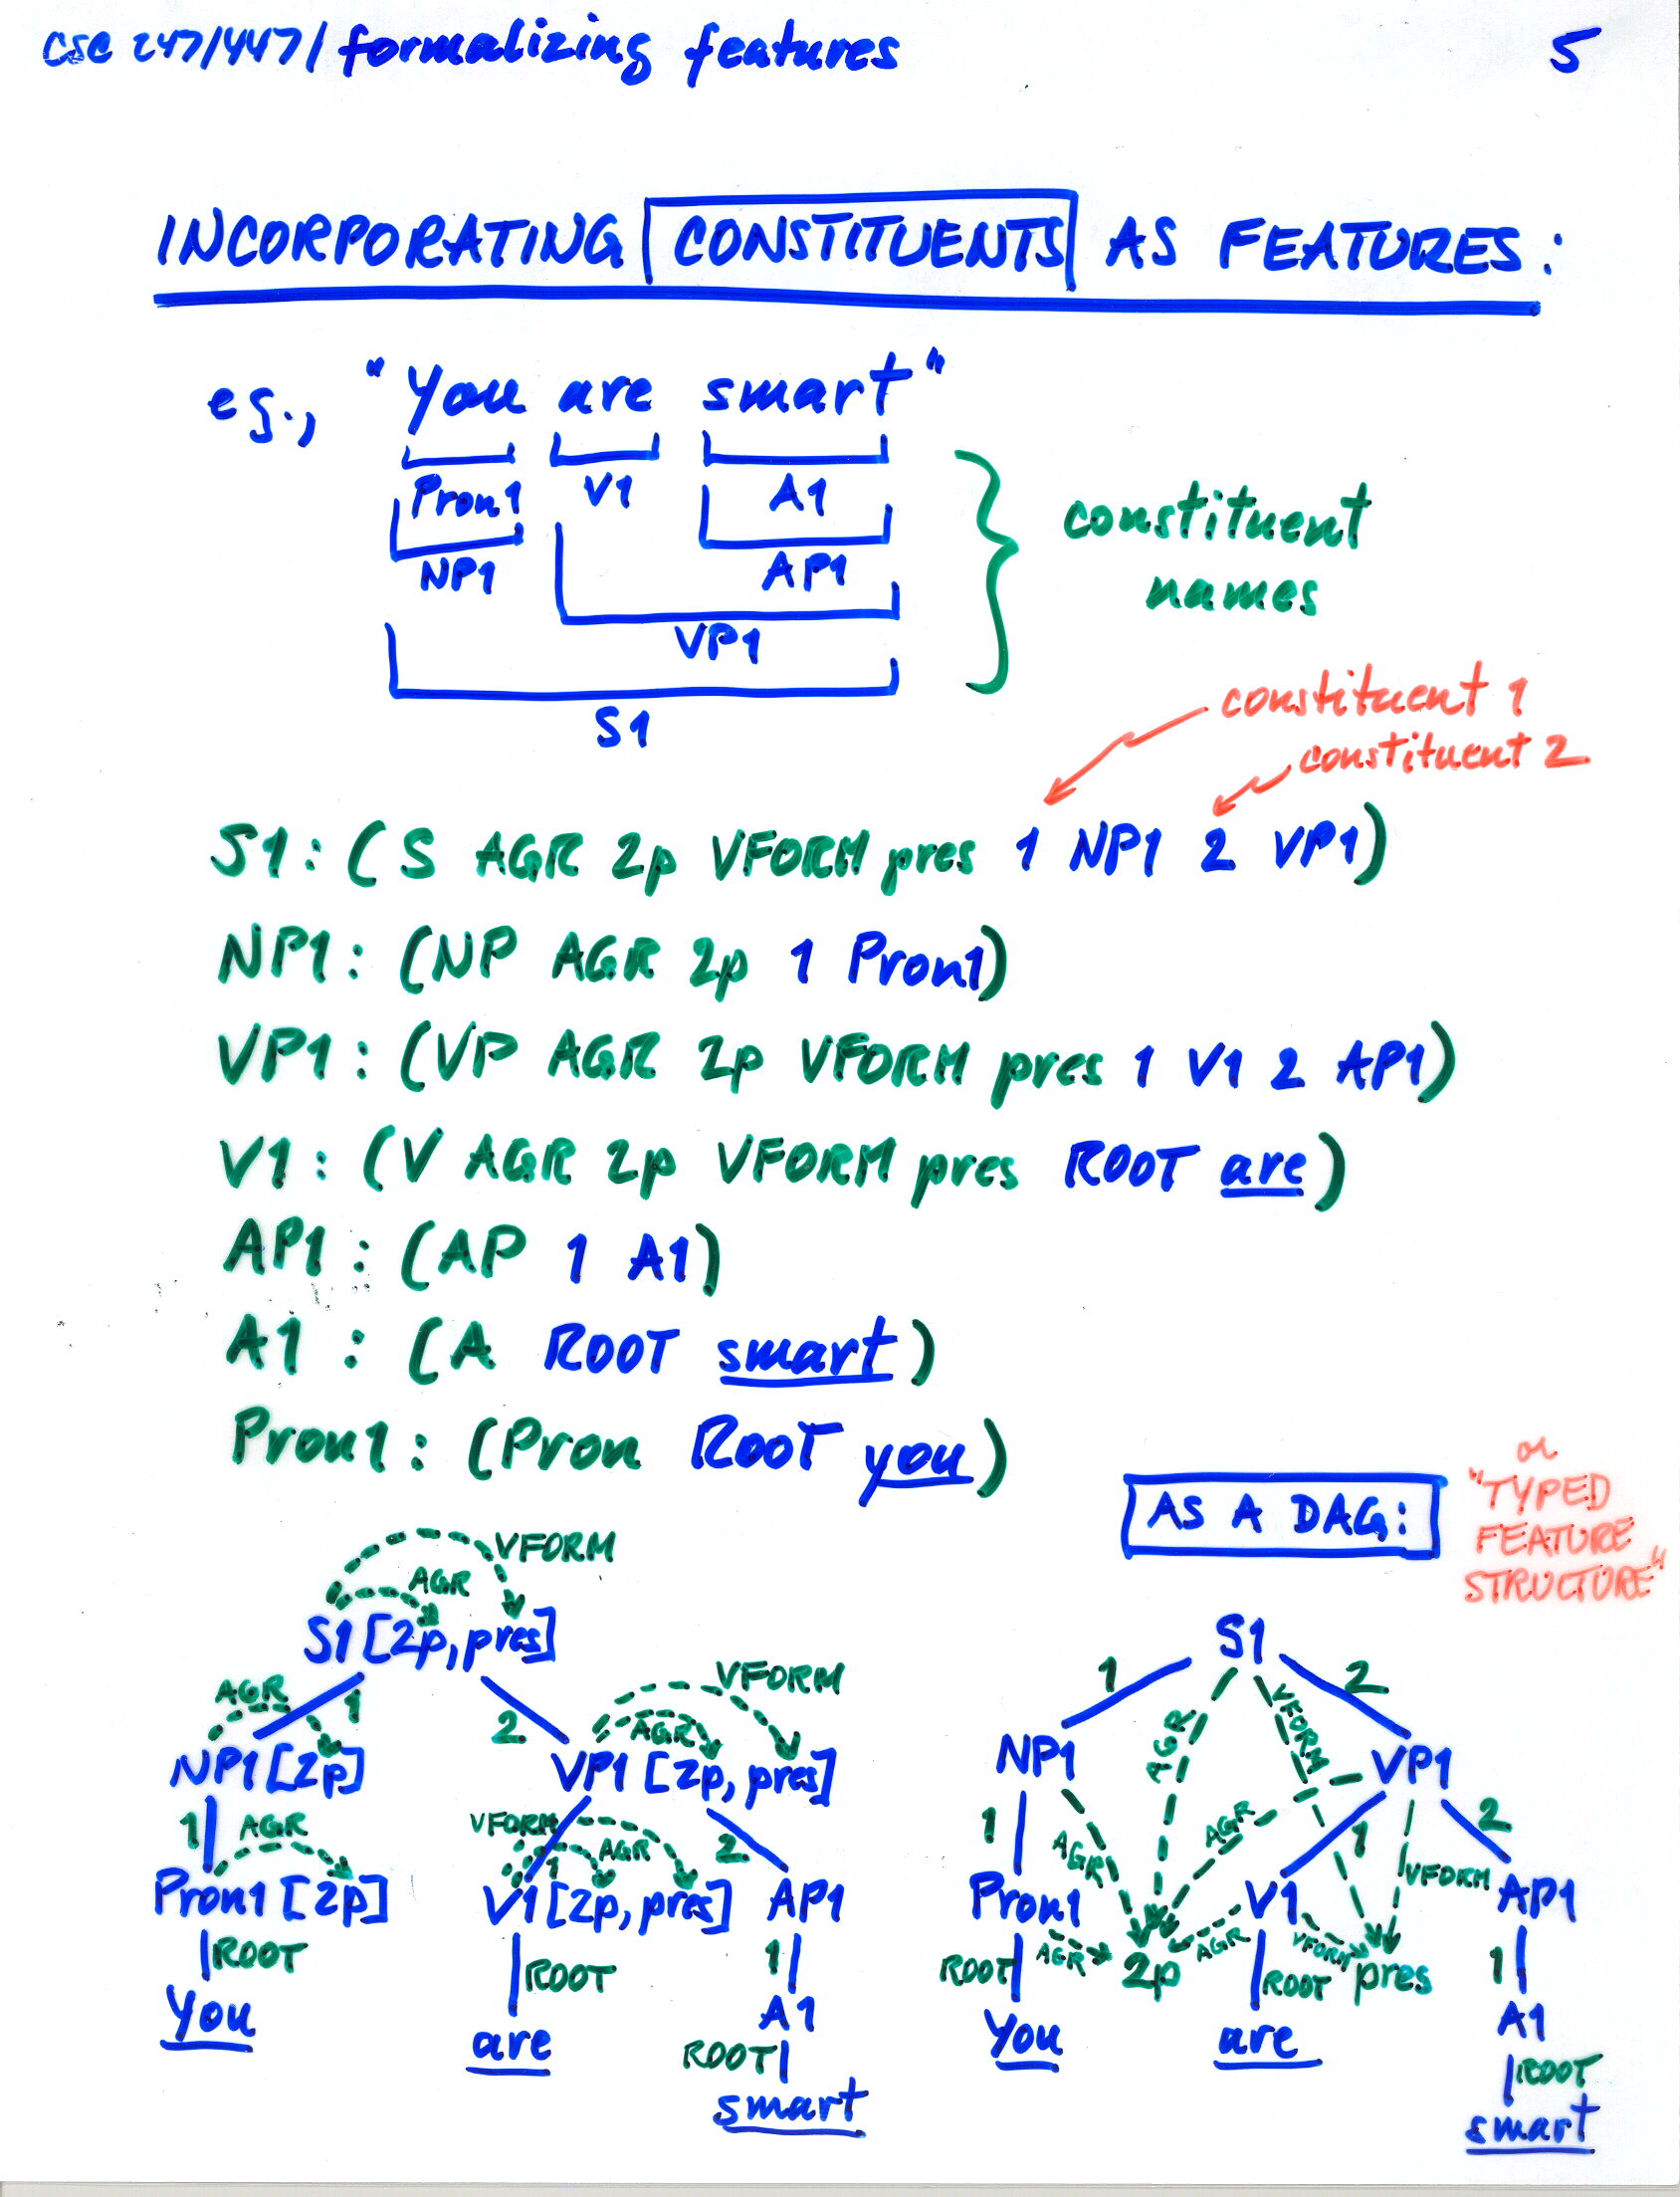 CSC 247/447/formalizing features 5
INCORPORATING CONSTITUENTS AS FEATURES:
eg., "You are smart"
Pron1 V1 A1
NP1 AP1
VP1
S1
constituent
names
constituent 1
constituent 2
S1: (S AGR 2p VFORM pres 1 NP1 2 VP1)
NP1: (NP AGR 2p 1 Pron1)
VP1: (VP AGR 2p VFORM pres 1 V1 2 AP1)
V1: (V AGR 2p VFORM pres ROOT are)
AP1: (AP 1 A1)
A1: (A ROOT smart)
Pron1: (Pron ROOT you)
AS A DAG:
or
"TYPED
FEATURE
STRUCTURE"
VFORM
AGR
S1[2p, pres]
AGR 1 2 VFORM
AGR
NP1[2p] VP1[2p, pres]
1 AGR VFORM 1 AGR 2
Pron1[2p] V1[2p, pres] AP1
ROOT ROOT 1
You are A1
ROOT
smart
S1
1 AGR VFORM 2
NP1 VP1
1 AGR AGR 1 VFORM 2
Pron1 V1 AP1
ROOT AGR 2p AGR ROOT VFORM pres 1
You are A1
ROOT
smart